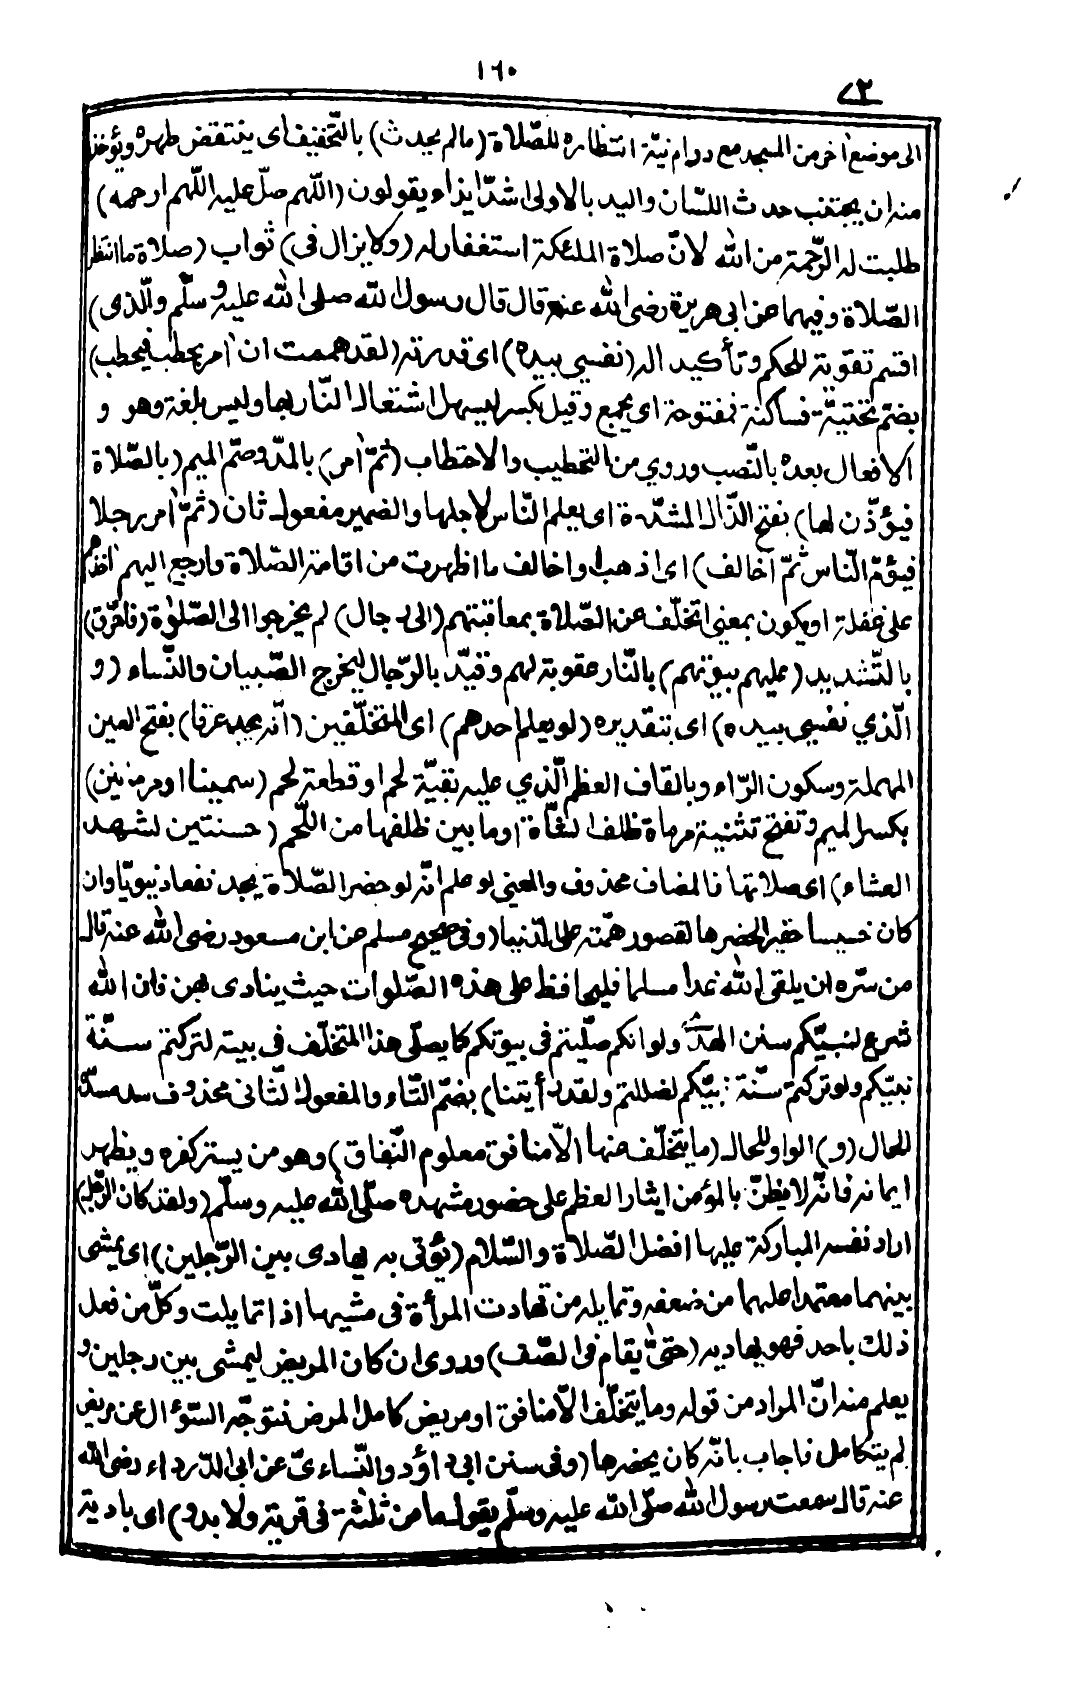 ١٦٠
٨٢
الى موضع اخر من المسجد مع دوام نيّة انتظاره للصّلاة (مالم يحدث) بالتّخفيف اى ينتقض طهره ويؤخذ
منه ان يجتنب حدث اللسّان واليد بالاولى اشدّ ايذاء يقولون (اللّهم صلّ عليه اللّهم ارحمه)
طلبت له الرّحمة من الله لانّ صلاة الملئكة استغفار له (ولا يزال فى) ثواب (صلاة ما انتظر
الصّلاة وفيهما عن ابى هريرة رضى الله عنه قال قال رسول الله صلى الله عليه وسلّم والّذى)
اقسم تقوية للحكم وتأكيدا له (نفسي بيده) اى قدرته (لقد هممت ان اٰمر بحطب فيحطب)
بضمّ تحتيّة فساكنة فمفتوحة اى يجمع وقيل يكسر ليسهل اشتعال النّار بها وليس بلغة وهو و
الافعال بعده بالنّصب وروي من التحطيب والاحتطاب (ثمّ اٰمر) بالمدّ وضمّ الميم (بالصّلاة
فيؤذّن لها) بفتح الذّال المشدّدة اى يعلم النّاس لاجلها والضمير مفعول ثان (ثمّ اٰمر رجلا
فيؤمّ النّاس ثمّ اخالف) اى اذهب او اخالف ما اظهرت من اقامة الصّلاة وارجع اليهم اٰخذهم
على غفلة او يكون بمعنى اتخلّف عن الصّلاة بمعاقبتهم (الى رجال) لم يخرجوا الى الصّلوٰة (فاحرّق)
بالتّشديد (عليهم بيوتهم) بالنّار عقوبة لهم وقيّد بالرّجال ليخرج الصّبيان والنّساء (و
الّذي نفسي بيده) اى بتقديره (لو يعلم احدهم) اى المتخلّفين (انّه يجد عرقا) بفتح العين
المهملة وسكون الرّاء وبالقاف العظم الّذي عليه بقيّة لحم او قطعة لحم (سمينا او مرماتين)
بكسر الميم وتفتح تثنية مرماة ظلف الشّاة او ما بين ظلفها من اللّحم (حسنتين لشهد
العشاء) اى صلاتها فالمضاف محذوف والمعنى لو علم انّه لو حضر الصّلاة يجد نفعا دنيويّا وان
كان خسيسا حقيرا لحضرها لقصور همّته على الدّنيا (وفى صحيح مسلم عن ابن مسعود رضى الله عنه قال
من سّره ان يلقى الله غدا مسلما فليحافظ على هذه الصّلوات حيث ينادى بهن فان الله
شرع لنبيّكم سنن الهدى ولو انكم صلّيتم فى بيوتكم كما يصلّى هذا المتخلّف فى بيته لتركتم سنّة
نبيّكم ولو تركتم سنّة نبيّكم لضللتم ولقد رأيتنا) بضمّ التّاء والمفعول الثّانى محذوف سد مسدّه
للحال (و) الواو للحال (ما يتخلّف عنها الّا منافق معلوم النّفاق) وهو من يستر كفره ويظهر
ايمانه فانّه لا يظنّ بالمؤمن ايثار العظم على حضور مشهده صلّى الله عليه وسلّم (ولقد كان الرّجل)
اراد نفسه المباركة عليها افضل الصّلاة والسّلام (يؤتى به يهادى بين الرّجلين) اى يمشى
بينهما معتمدا عليهما من ضعفه وتمايله من تهادت المرأة فى مشيها اذا تمايلت وكلّ من فعل
ذلك باحد فهو يهاديه (حتىّ يقام فى الصّف) وروى ان كان المريض ليمشى بين رجلين و
يعلم منه انّ المراد من قوله وما يتخلّف الّا منافق او مريض كامل المرض فتوجّه السّؤال عن مريض
لم يتكامل فاجاب بانّه كان يحضرها (وفى سنن ابى داؤد والنّساءىّ عن ابى الدّرداء رضى الله
عنه قال سمعت رسول الله صلّى الله عليه وسلّم يقول ما من ثلٰثة فى قرية ولا بدو) اى بادية